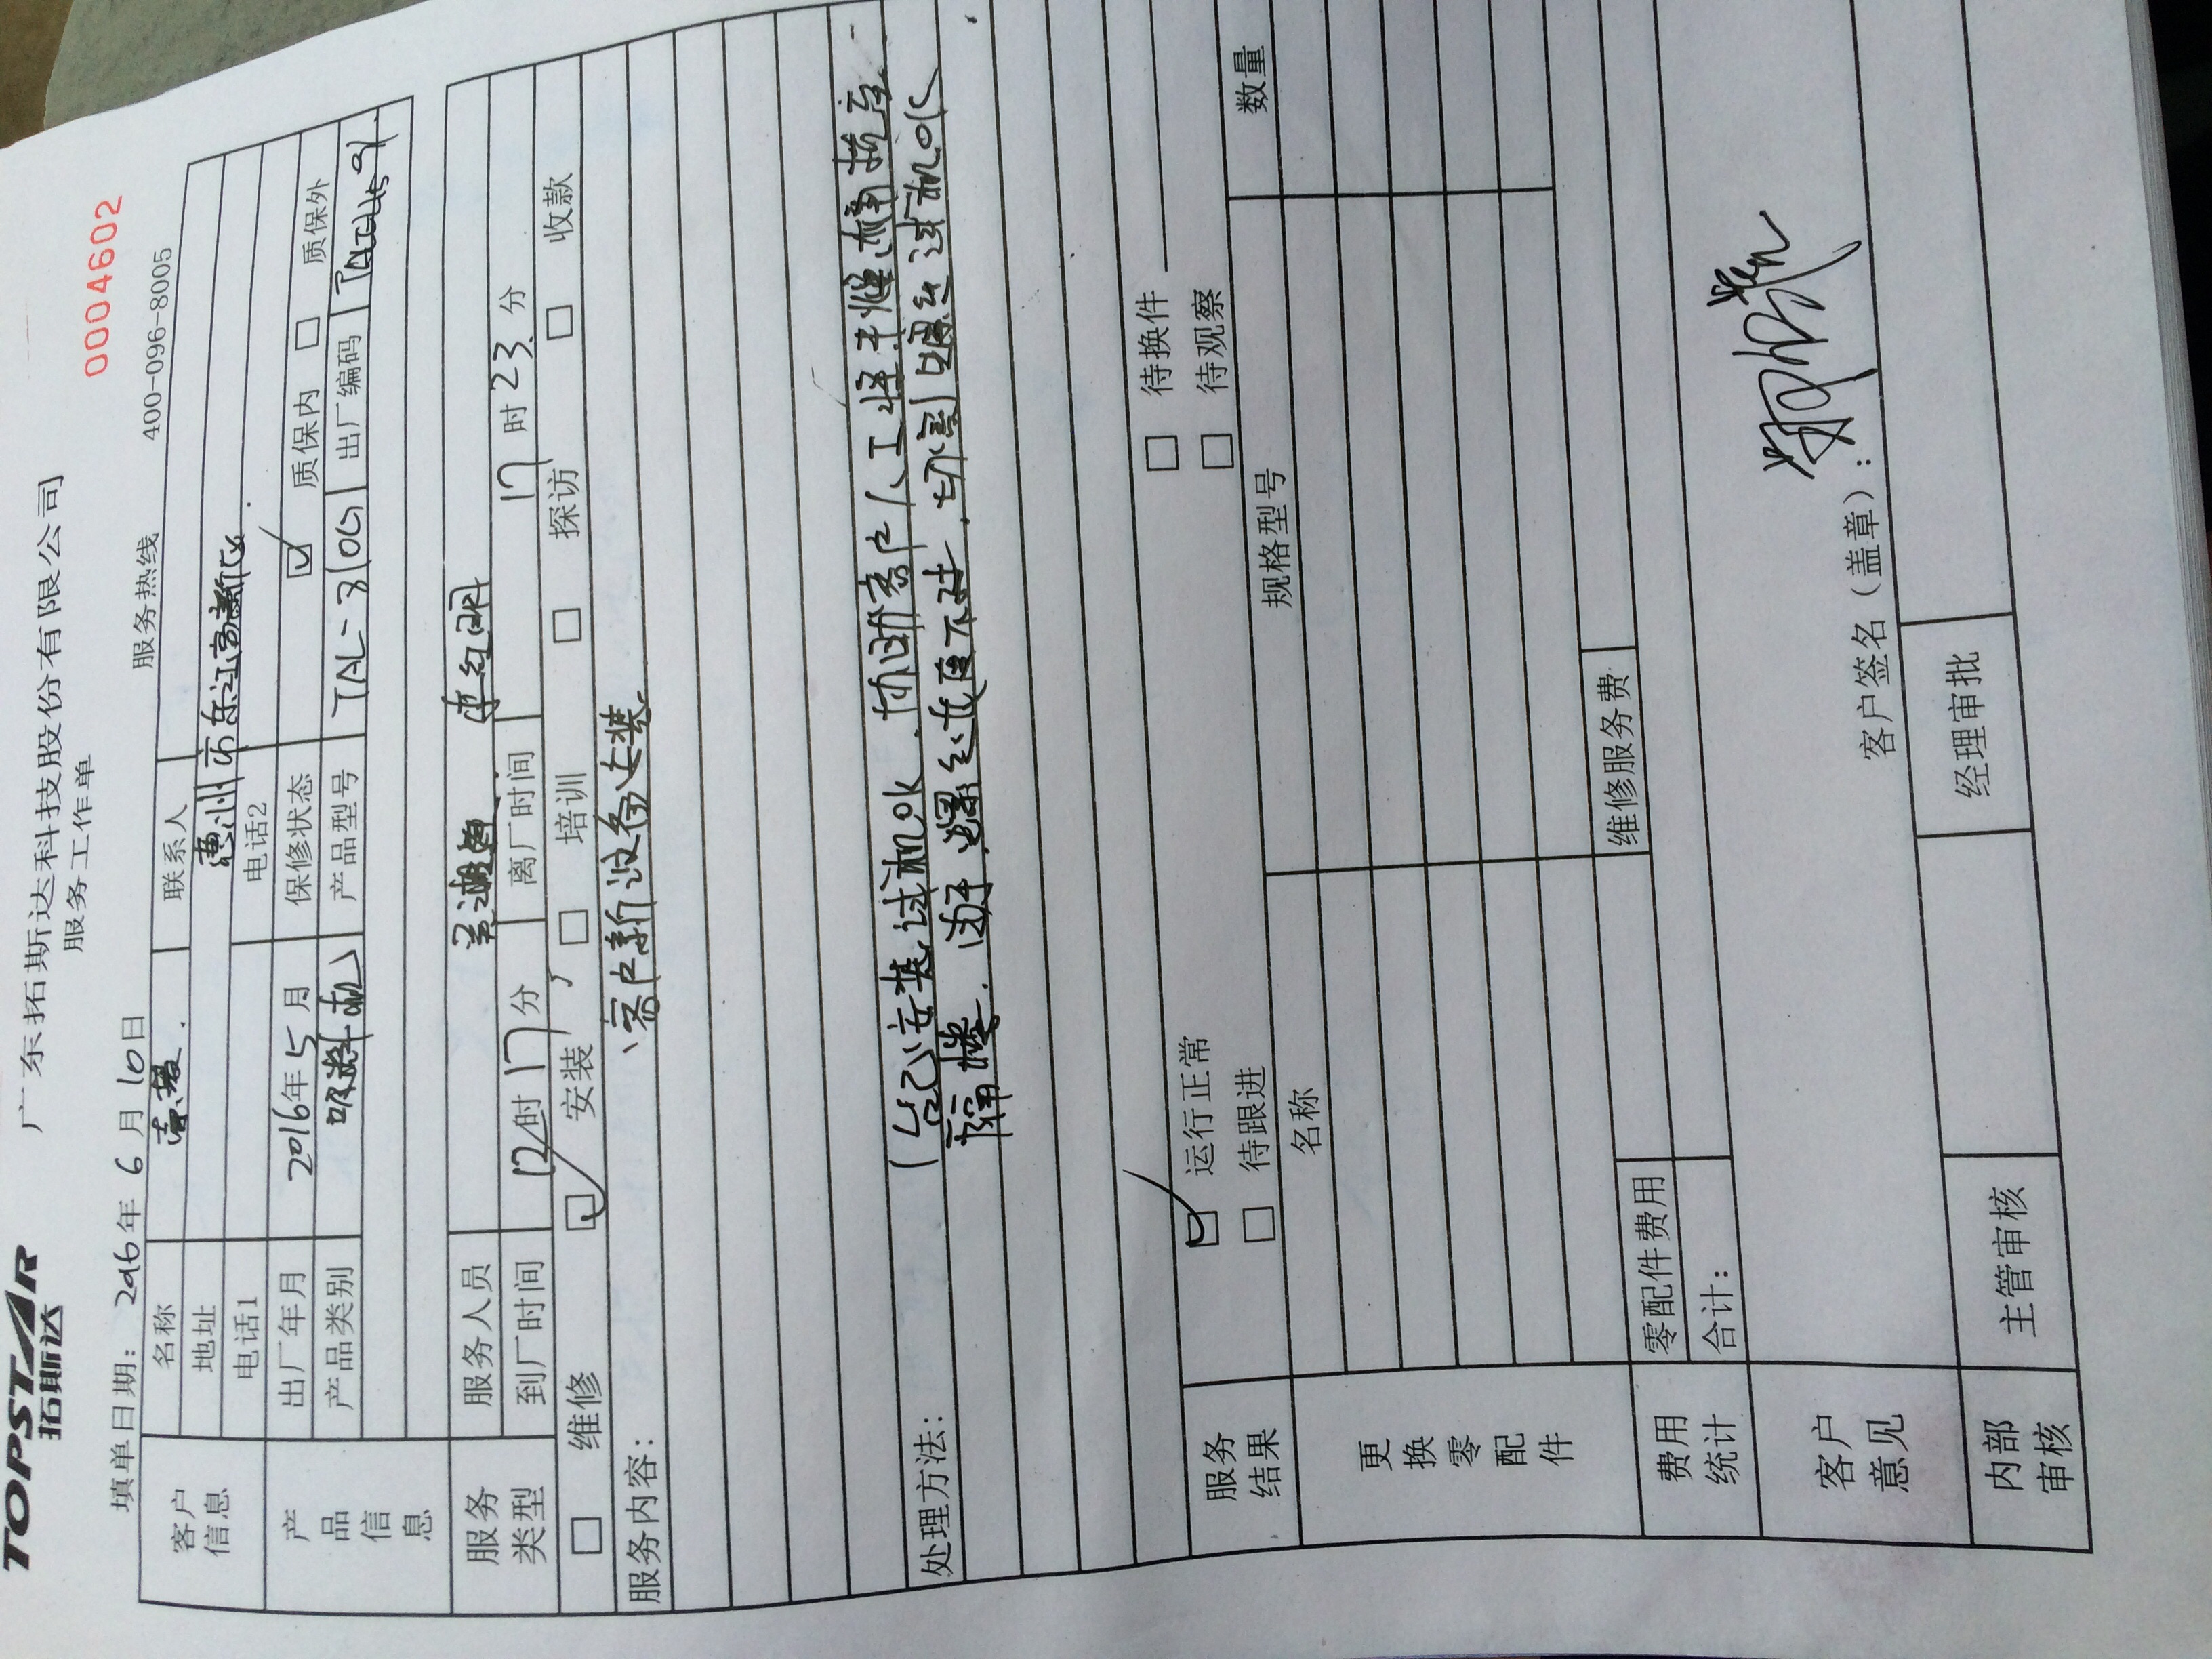 TOPSTAR
拓斯达
广东拓斯达科技股份有限公司
服务工作单
0004602
填单日期: 2016年 6 月 10 日
服务热线 400-096-8005
客户信息
名称
联系人
地址 惠州市东江高新区
电话1 电话2
产品信息
出厂年月 2016年 5 月 保修状态 质保内 质保外
产品类别 吸料机 产品型号 TAL- 出厂编码
服务类型
服务人员
到厂时间 12时 17 分 离厂时间 17 时 23 分
维修 安装 培训 探访 收款
服务内容:
客户新设备安装
处理方法:
1台已安装试机ok. 协助客户人工将
隔楼. 螺丝 不对. 螺丝 试机ok
服务结果
运行正常 待换件
待跟进 待观察
更换零配件
名称 规格型号 数量
费用统计
零配件费用 维修服务费
合计:
客户意见
客户签名(盖章):
内部审核
主管审核 经理审批